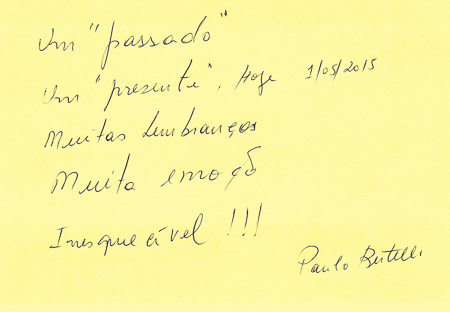 Um "passado"
Um "presente", Hoje 1/05/2015
Muitas Lembranças
Muita emoção
Inesquecível !!!
Paulo Bertelli